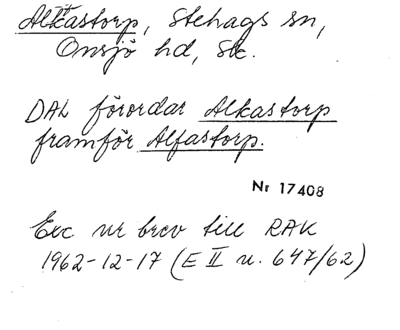 Alkastorp, Stehags sn,
Onsjö hd, Sk.
DAL förordar Alkastorp
framför Alfastorp.
Nr 17408
Exc ur brev till RAK
1962-12-17 (E II u. 647/62)